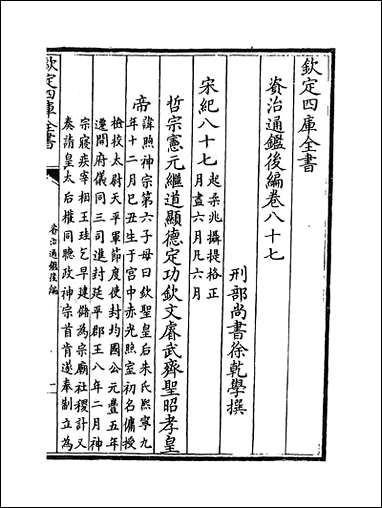 欽定四庫全書
資治通鑑後編卷八十七
刑部尚書徐乾學撰
宋紀八十七起柔兆攝提格正月盡六月凡六月
哲宗憲元繼道顯德定功欽文睿武齊聖昭孝皇
帝諱煦神宗第六子母曰欽聖皇后朱氏熙寧九
年十二月巳丑生于宫中赤光照室初名傭授
檢校太尉天平軍節度使封均國公元豐五年
遷開府儀同三司進封延平郡王八年二月神
宗寢疾宰相王珪乞早建儲為宗廟社稷計又
奏請皇太后權同聽政神宗首肯遂奉制立為
欽定四庫全書
資治通鑑後編
一